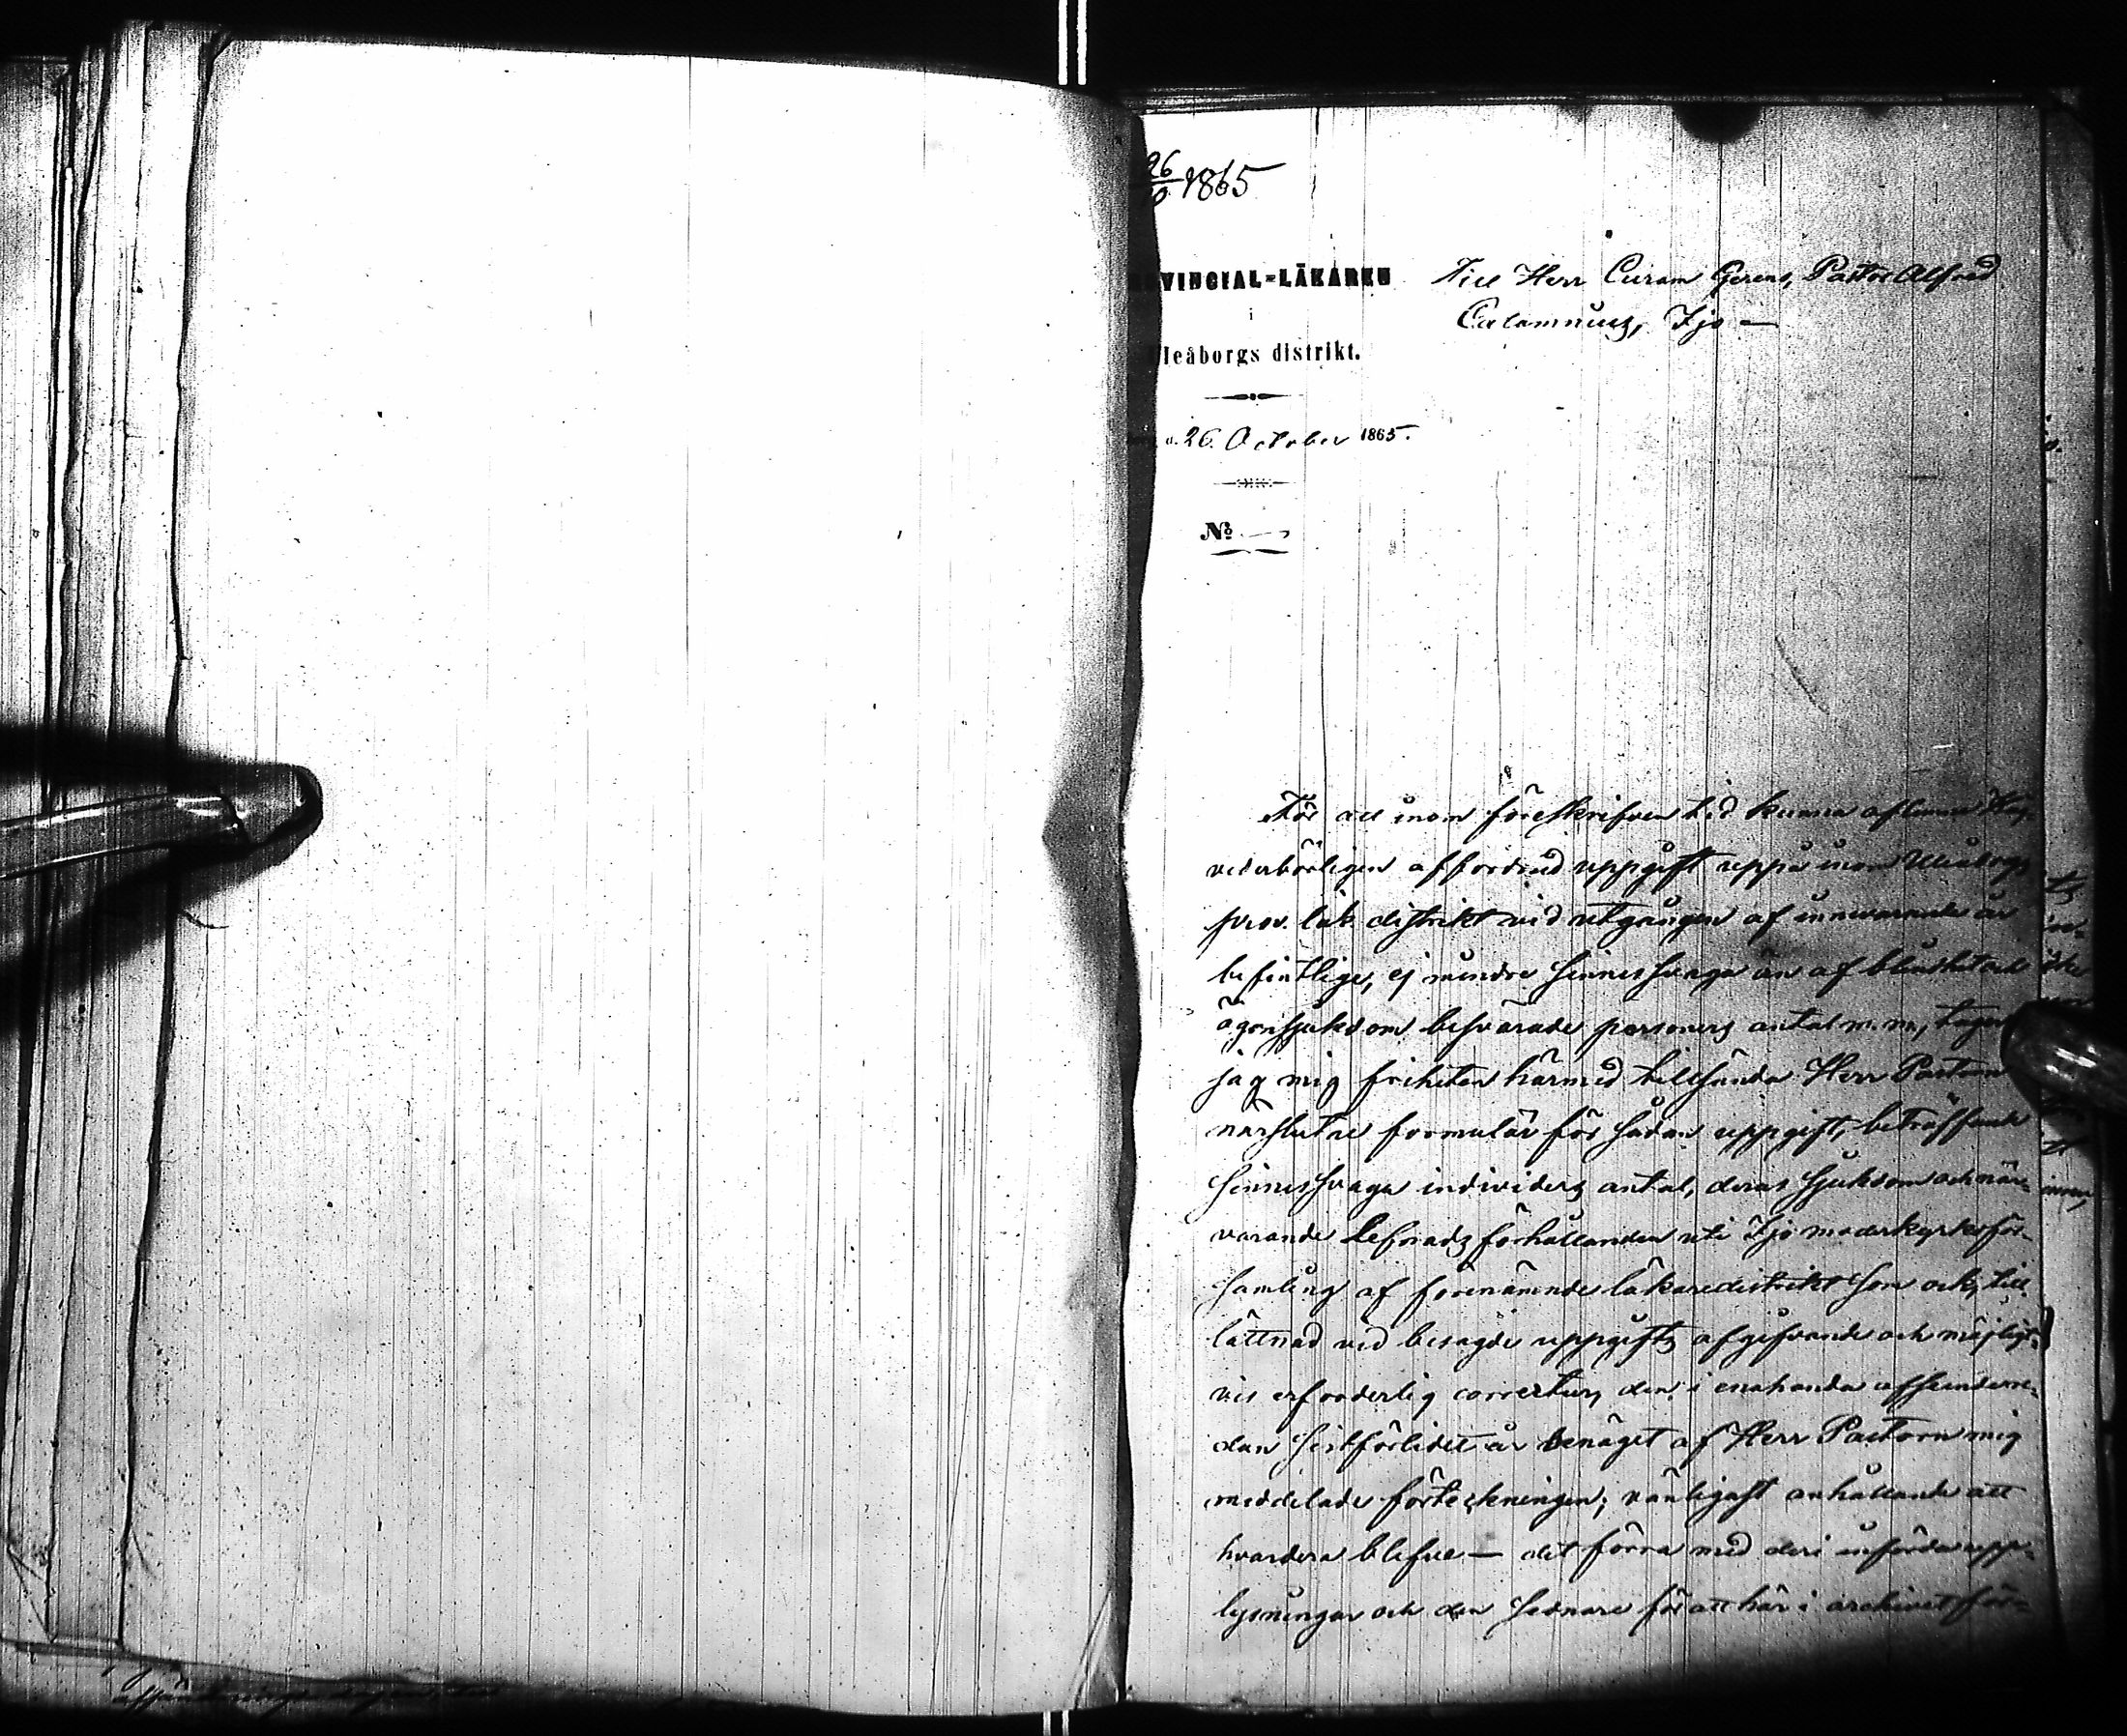 26/10 1865
VINCIAL-LÄKAREN
i
leåborgs distrikt.
d. 26. October 1865.
No
Till Herr Curam Gerens, Pastor Alfred
Calamnius, Ijo —
För att inom föreskrifven tid kunna aflemna
vederbörligen affordrad uppgift uppå inom Uleåborgs
prov. läk. distrikt vid utgången af innevarande år
befintlige, ej mindre sinnessvaga än af blindhet och
ögonsjukdom besvärade personers antal m. m., tager
jag mig friheten härmed tillsända Herr Pastorn
närslutne formulär för sådan uppgift, beträffande
sinnessvaga individers antal, deras sjukdom och när-
varande lefnadsförhållanden uti Ijo moderkyrkoför-
samling af förenämnde läkaredistrikt som ock, till
lättnad vid besagde uppgifts afgifvande och möjligt-
vis erforderlig correctur, den i enahanda afseende re-
dan sistförlidet år benäget af Herr Pastorn mig
meddelade förteckningen; vänligast anhållande att
hvardera blefve — det förra med deri införda upp-
lysningar och den sednare för att här i archivet för-